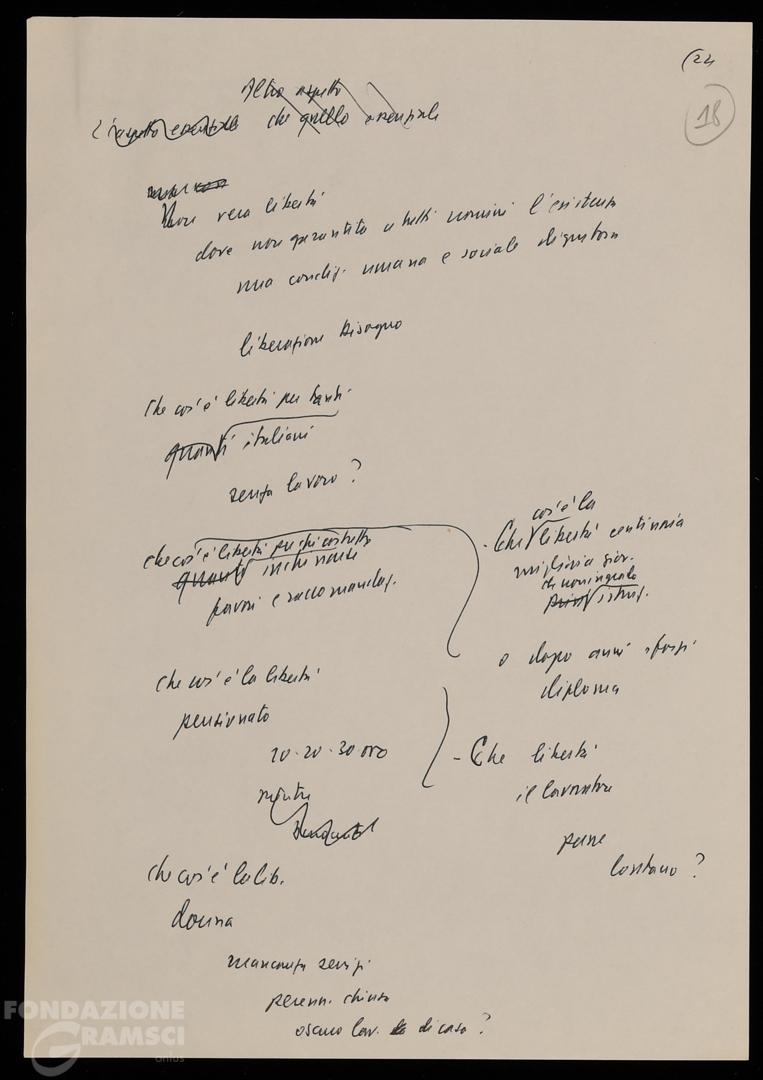 (24
18
Altro aspetto
L'aspetto essenziale che quello essenziale
Non vera libertà
dove non garantita a tutti uomini l'esistenza
una condiz. umana e sociale dignitosa
liberazione bisogno
Che cos'è libertà per tanti
quanti italiani
senza lavoro?
che cos'è libertà per chi costretto
quanti inchinarsi
favori e raccomandaz.
che cos'è la libertà
pensionato
10-20-30000
mentre
che cos'è la lib.
donna
mancanza servizi
perenn. chiusa
oscuro lav. di casa?
cos'è la
- Che libertà centinaia
migliaia giov.
istruz.
o dopo anni sforzi
diploma
- Che libertà
il lavoratore
paese
lontano?
FONDAZIONE
GRAMSCI
onlus